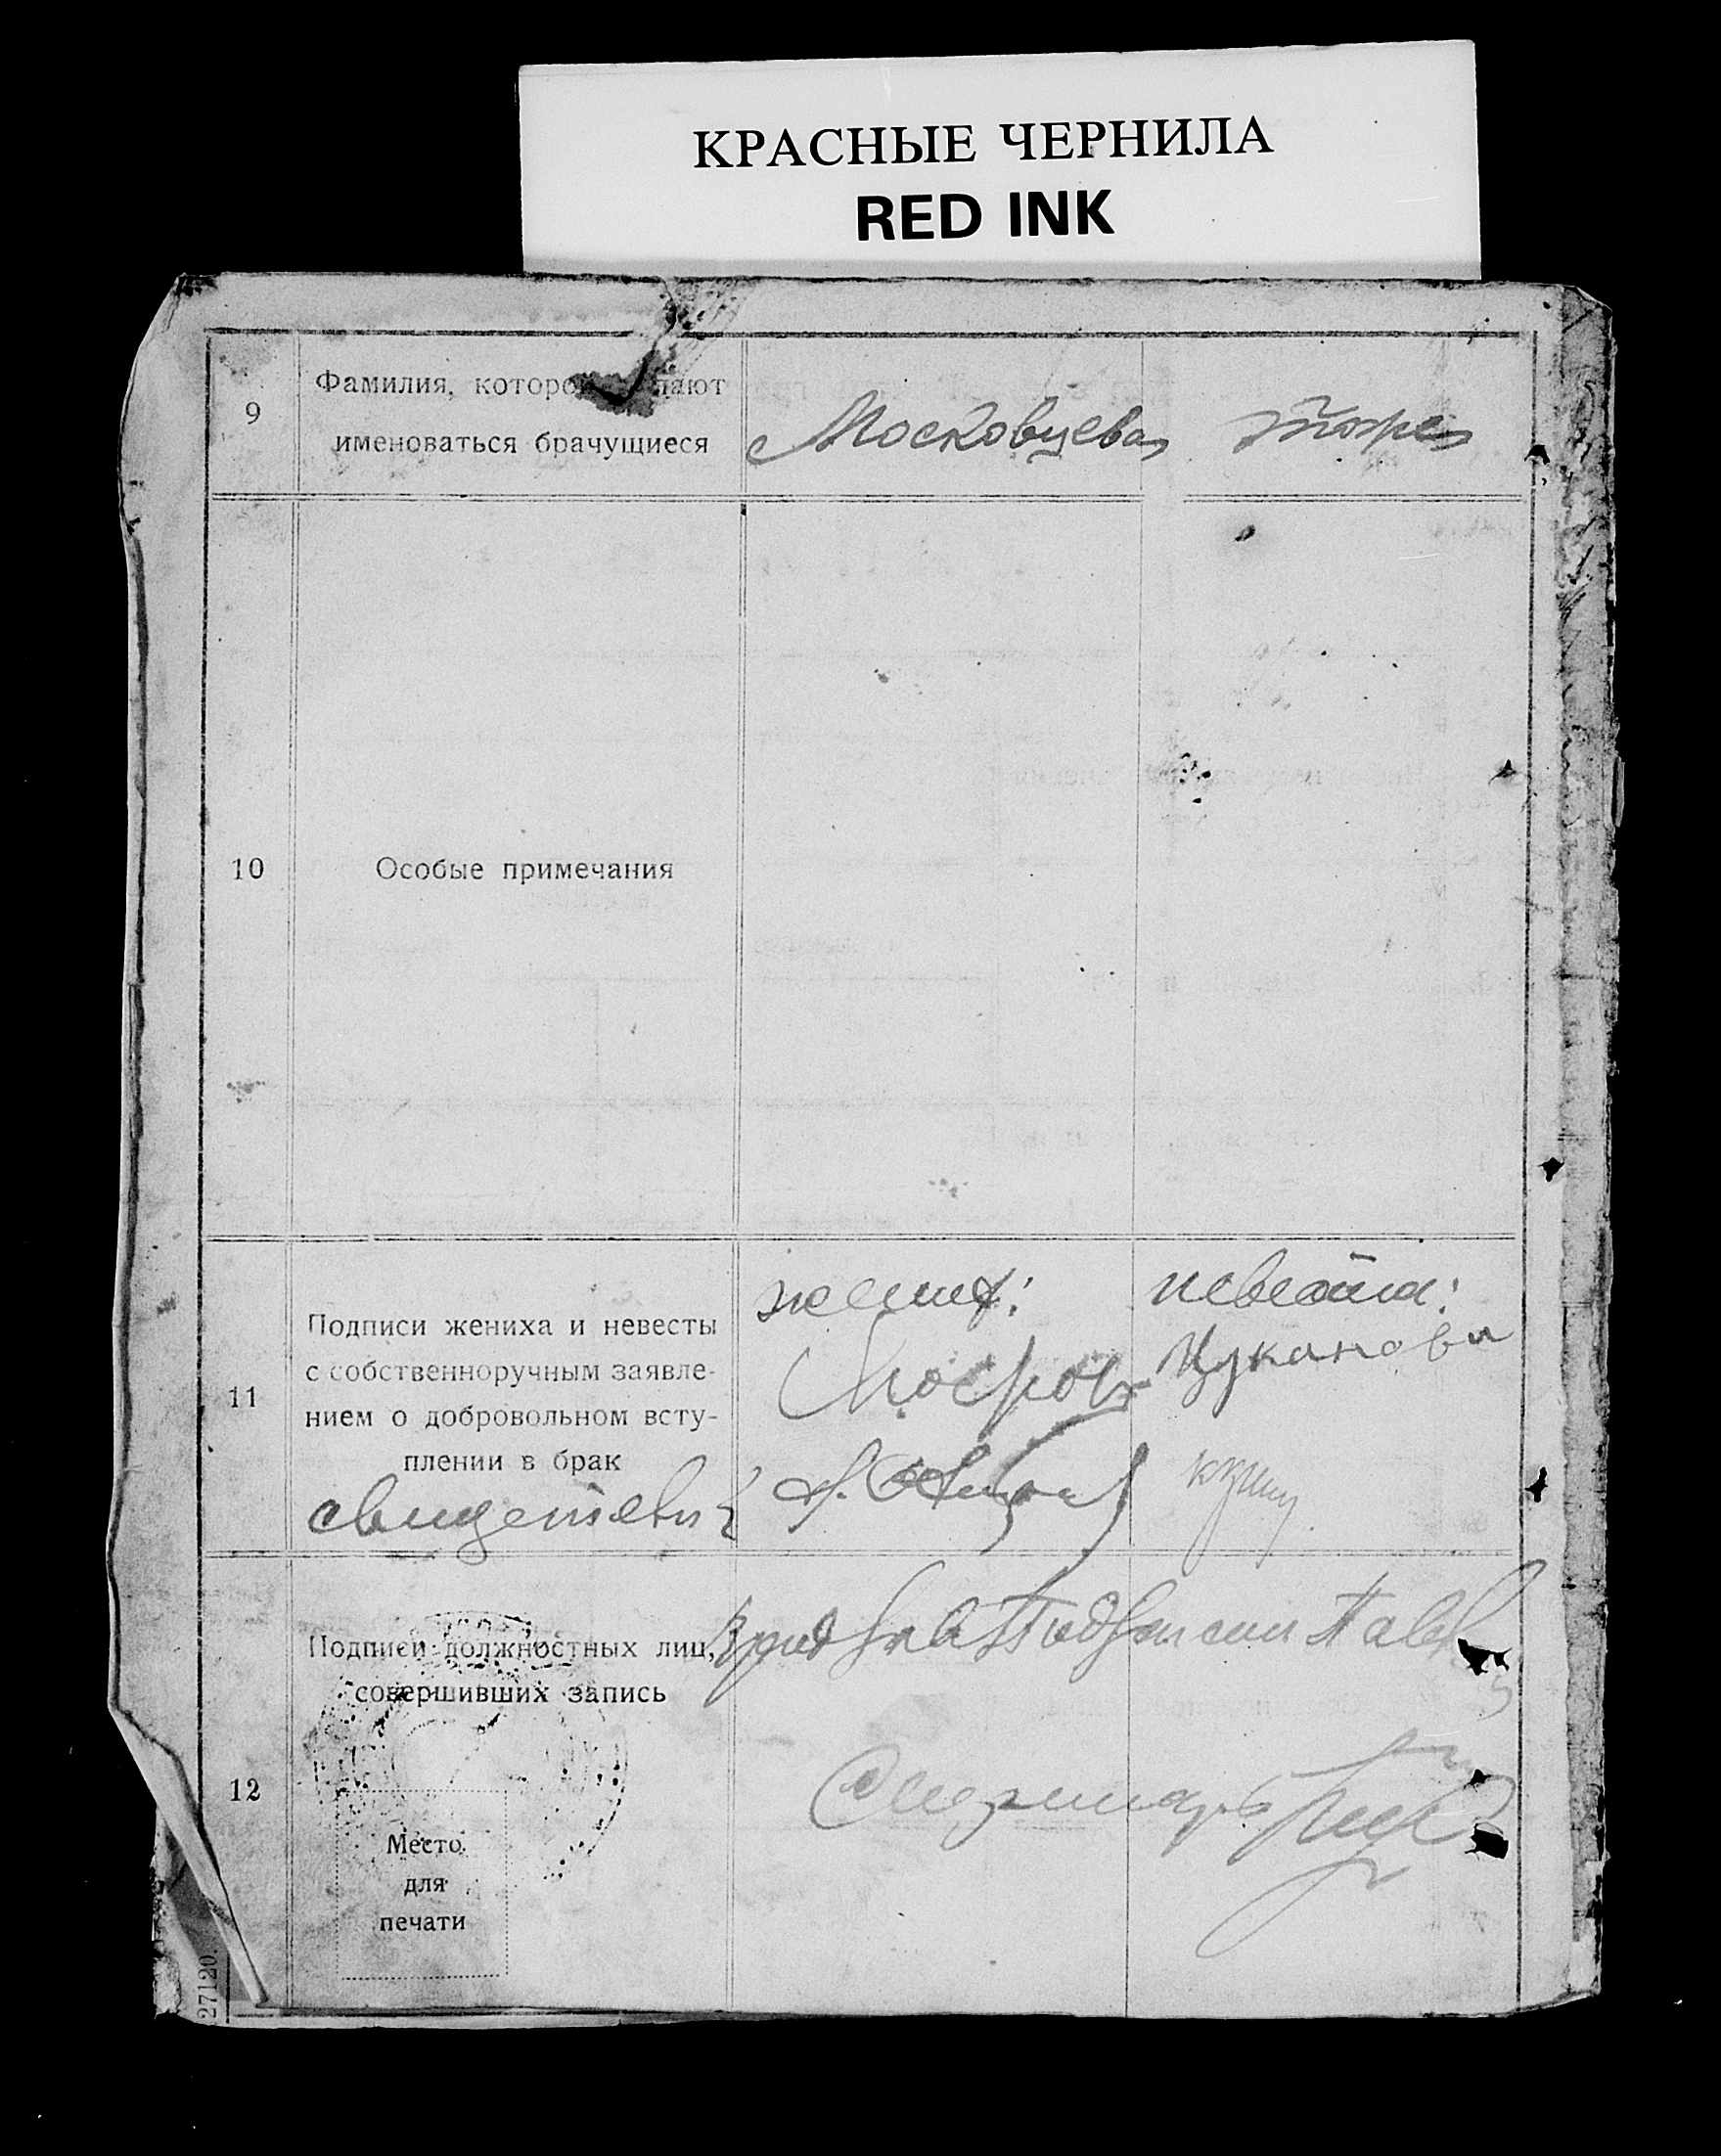 КРАСНЫЕ ЧЕРНИЛА
RED INK
9
Фамилия, которой
именоваться брачущиеся
Московцева
тоже
10
Особые примечания
11
Подписи жениха и невесты
с собственноручным заявле-
нием о добровольном всту-
плении в брак
свидетели
жених:
невеста:
Цуканова
12
Подписи должностных лиц,
совершивших запись
Место
для
печати
27120